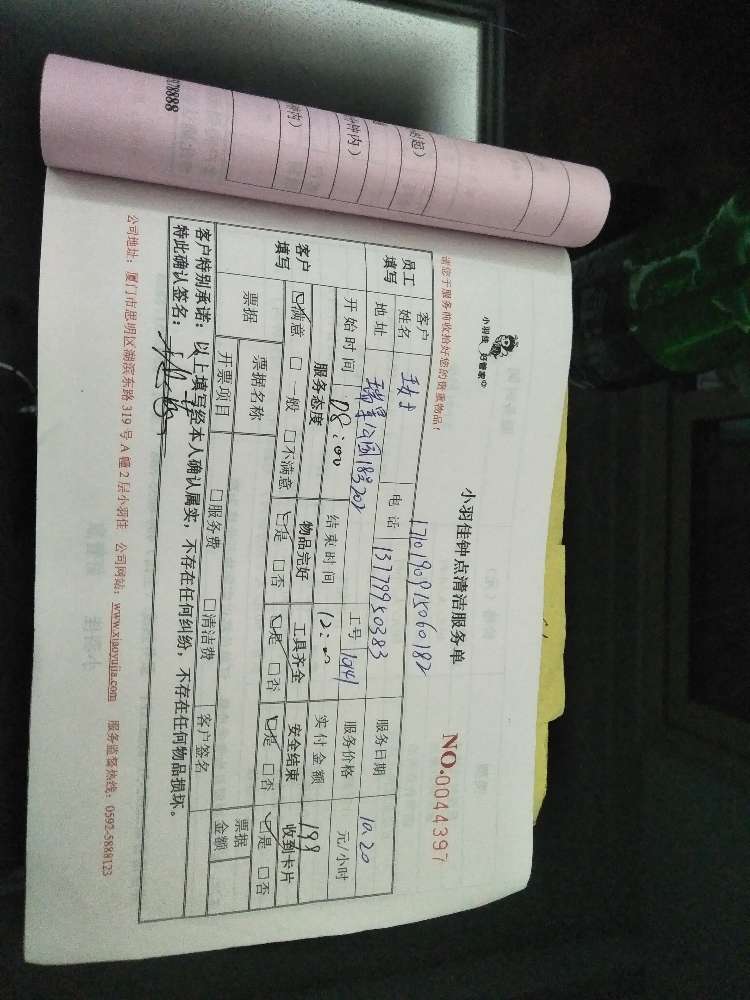 小羽佳 好管家
小羽佳钟点清洁服务单
NO.0044397
请您于服务前收拾好您的贵重物品!
1710190915060182
员工填写 客户姓名 王女士 电话 13799950383 服务日期 10.20
地址 瑞景公园183202 工号 10141 服务价格 元/小时
开始时间 08:00 结束时间 12:00 实付金额 199
客户填写 服务态度 物品完好 工具齐全 安全结束 收到卡片
☑满意 □一般 □不满意 ☑是 □否 ☑是 □否 ☑是 □否 ☑是 □否
票据 票据名称 客户签名 票据金额
开票项目 □服务费 □清洁费
客户特别承诺:以上填写经本人确认属实,不存在任何纠纷,不存在任何物品损坏。
特此确认签名:
公司地址:厦门市思明区湖滨东路319号A幢2层小羽佳 公司网站:www.xiaoyujia.com 服务监督热线:0592-5888123
78888
钟内)
时起)